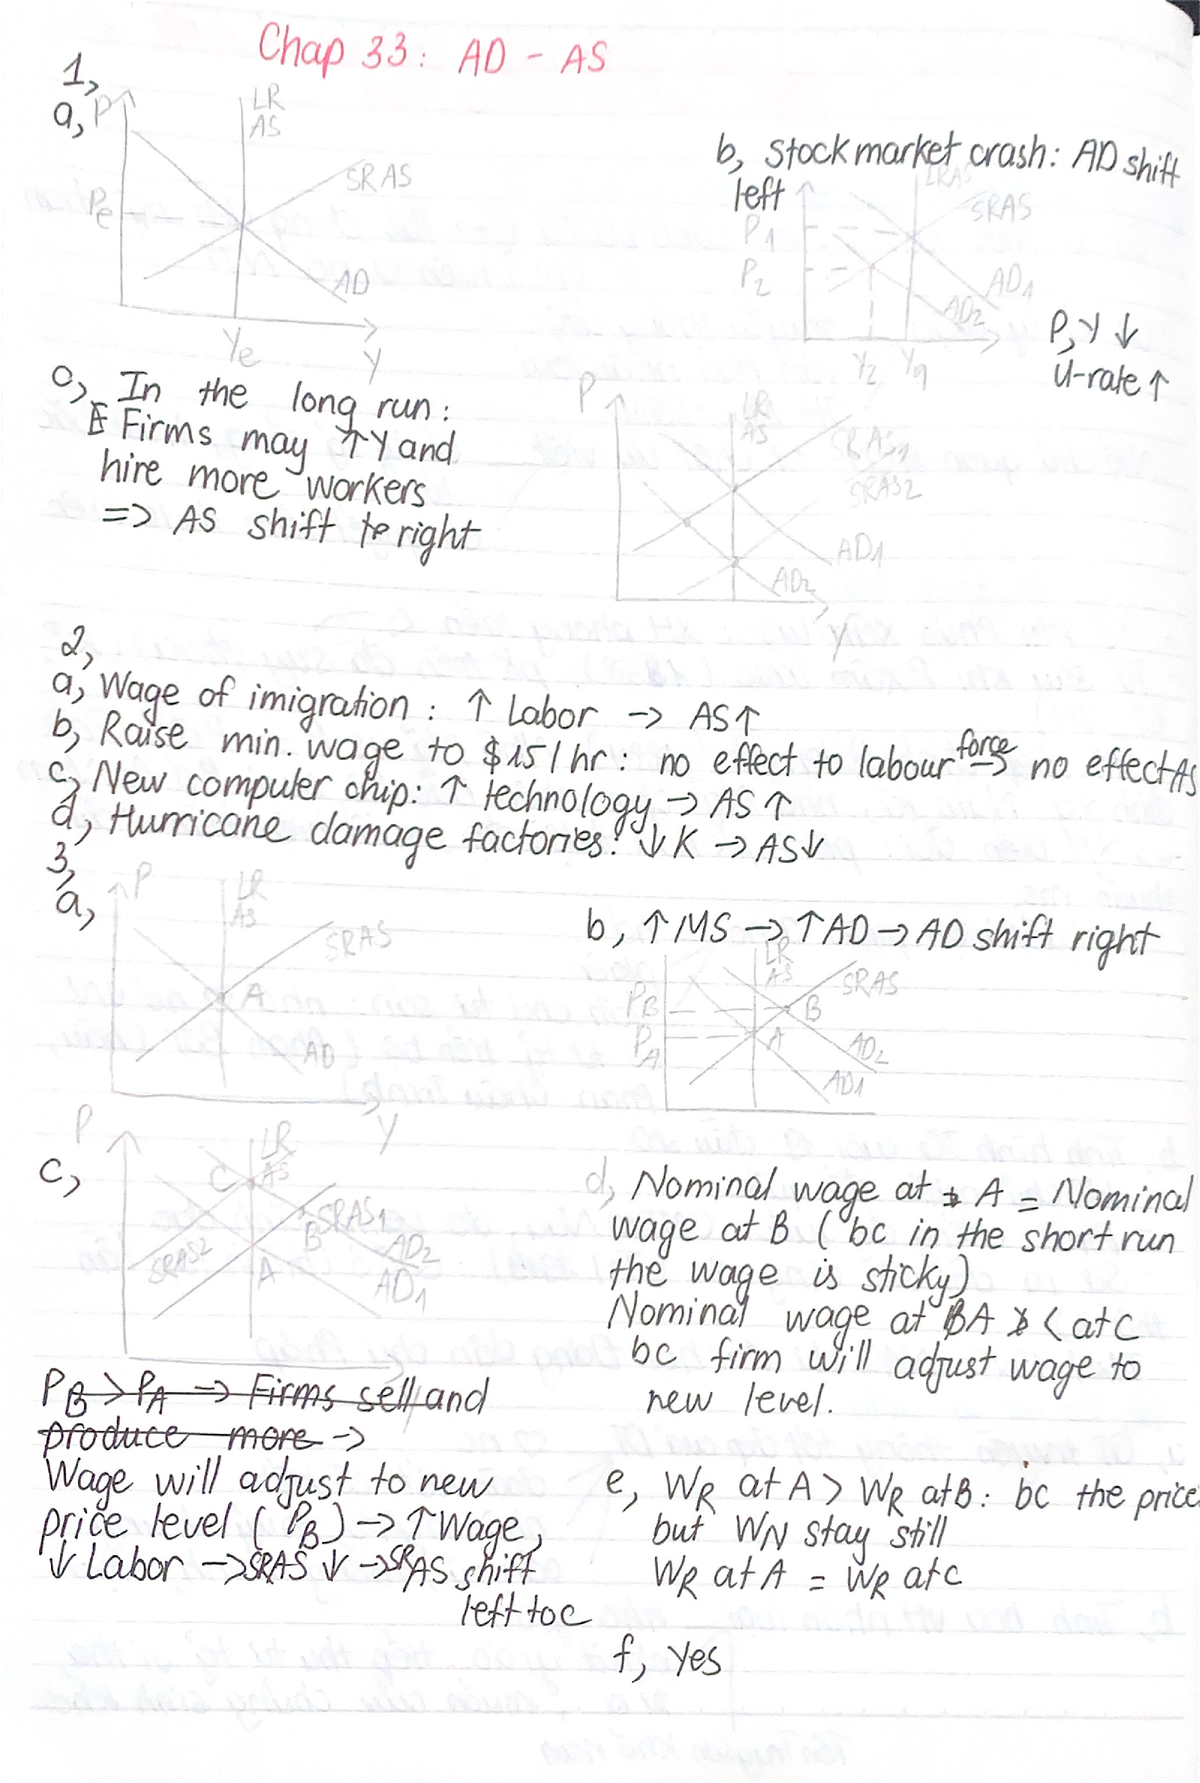 Chap 33: AD - AS
1,
a,
P
LR
AS
SRAS
Pe
AD
Ye
Y
b, Stock market crash: AD shift
left
LRAS
SRAS
P1
P2
AD1
AD2
Y2
P,Y ↓
U-rate ↑
c, In the long run:
Firms may ↑Y and
hire more workers
=> AS shift to right
P
LR
AS
SRAS1
SRAS2
AD1
AD2
Y
2,
a, Wage of imigration: ↑ Labor -> AS↑
b, Raise min. wage to $15/hr: no effect to labour force -> no effect AS
c, New computer chip: ↑ technology -> AS ↑
d, Hurricane damage factories: ↓K -> AS↓
3,
a,
P
LR
AS
SRAS
A
AD
Y
b, ↑MS -> ↑AD -> AD shift right
LR
AS
SRAS
PB
B
PA
A
AD2
AD1
c,
P
LR
AS
C
SRAS1
B
SRAS2
AD2
A
AD1
PB > PA -> Firms sell and
produce more ->
Wage will adjust to new
price level (PB) -> ↑Wage,
↓ Labor -> SRAS ↓ -> SRAS shift
left to C
d, Nominal wage at A = Nominal
wage at B (bc in the short run
the wage is sticky)
Nominal wage at A < at C
bc firm will adjust wage to
new level.
e, WR at A > WR at B: bc the price
but WN stay still
WR at A = WR at C
f, Yes